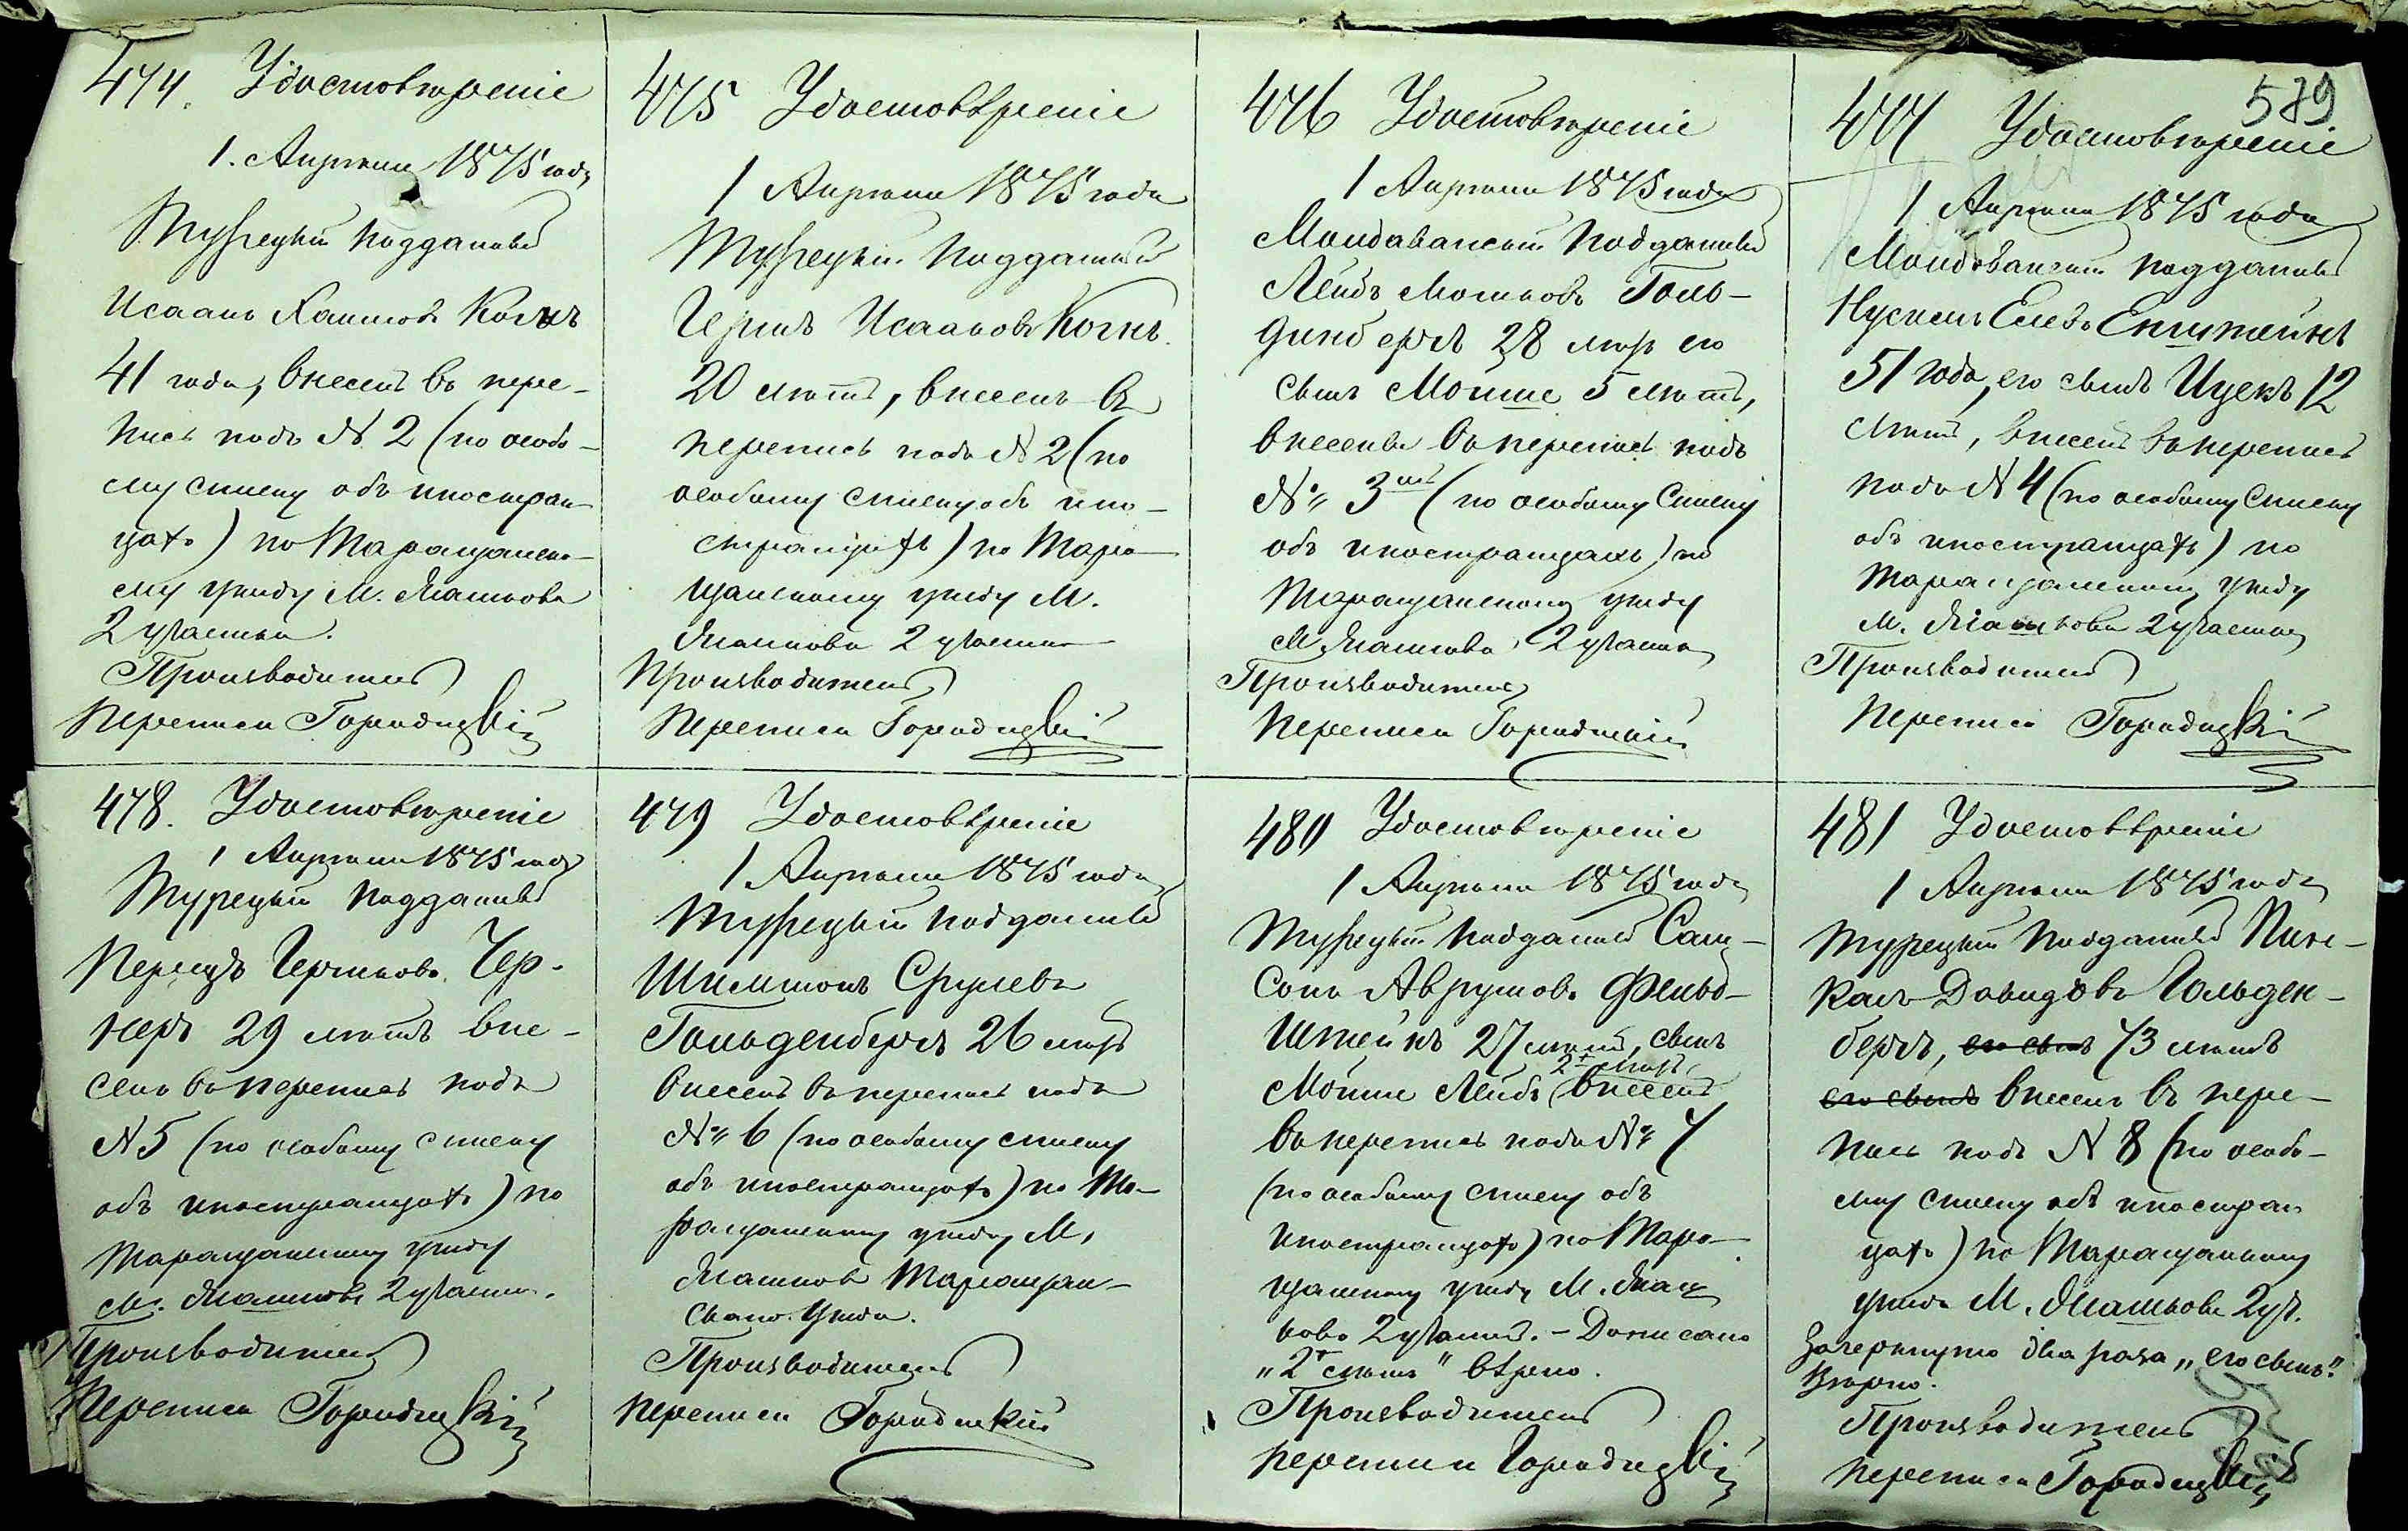 579
474. Удостовѣреніе
1. Апрѣля 1875 года
Турецкій подданный
Исаакъ Хаимовъ Коганъ
41 года, внесенъ въ пере-
пись подъ № 2 (по особо-
му списку объ иностран-
цахъ) по Таращанско-
му уѣзду М. Жашкова
2 участка.
Производитель
Переписи Городицкій
475 Удостовѣреніе
1 Апрѣля 1875 года
Турецкій подданный
Гершъ Исааковъ Коганъ.
20 лѣтъ, внесенъ въ
перепись подъ № 2 (по
особому списку объ ино-
странцахъ) по Тара-
щанскому уѣзду М.
Жашкова 2 участка
Производитель
Переписи Городицкій
476 Удостовѣреніе
1 Апрѣля 1875 года
Молдаванскій подданный
Лейбъ Мошковъ Голь-
динбергъ 28 лѣтъ его
сынъ Мойше 5 лѣтъ,
внесены въ перепись подъ
№ 3 (по особому списку
объ иностранцахъ) по
Таращанскому уѣзду
М Жашкова, 2 участка
Производитель
Переписи Городицкій
477 Удостовѣреніе
1 Апрѣля 1875 года
Молдованскій подданный
51 года, его сынъ Ицекъ 12
лѣтъ, внесенъ въ перепись
подъ № 4 (по особому списку
объ иностранцахъ) по
Таращанскому уѣзду
М. Жашкова 2 участка
Производитель
Переписи Городицкій
478. Удостовѣреніе
1 Апрѣля 1875 года
Турецкій подданный
Перецъ Гершковъ Чер-
неръ 29 лѣтъ вне-
сенъ въ перепись подъ
№ 5 (по особому списку
объ иностранцахъ) по
Таращанскому уѣзду
М. Жашкова 2 участка.
Производитель
Переписи Городицкій
479 Удостовѣреніе
1 Апрѣля 1875 года
Турецкій подданный
Шимшонъ Срулевъ
Гольденбергъ 26 лѣтъ
внесенъ въ перепись подъ
№ 6 (по особому списку
объ иностранцахъ) по Та-
ращанскому уѣзду М.
Жашков Таращан-
скаго Уѣзда.
Производитель
Переписи Городицкій
480 Удостовѣреніе
1 Апрѣля 1875 года
Турецкій подданный Сам-
сонъ Аврумовъ Фельд-
штейнъ 27 лѣтъ, сынъ
2х лѣтъ
Мойше Лейбъ внесенъ
въ перепись подъ № 7
(по особому списку объ
иностранцахъ) по Тара-
щанскому уѣзду М. Жаш
кова 2 участка. – Дописано
„2х лѣтъ" вѣрно.
Производитель
переписи Городицкій
481 Удостовѣреніе
1 Апрѣля 1875 года
Турецкій подданный Пин-
касъ Давидовъ Гольден-
бергъ, его сынъ 73 лѣтъ
его сынъ внесенъ въ пере-
пись подъ № 8 (по особо-
му списку объ иностран-
цахъ) по Таращанскому
уѣзду М. Жашкова 2 уч.
Зачеркнуто два раза „его сынъ".
Вѣрно.
Производитель
Переписи Городицкій